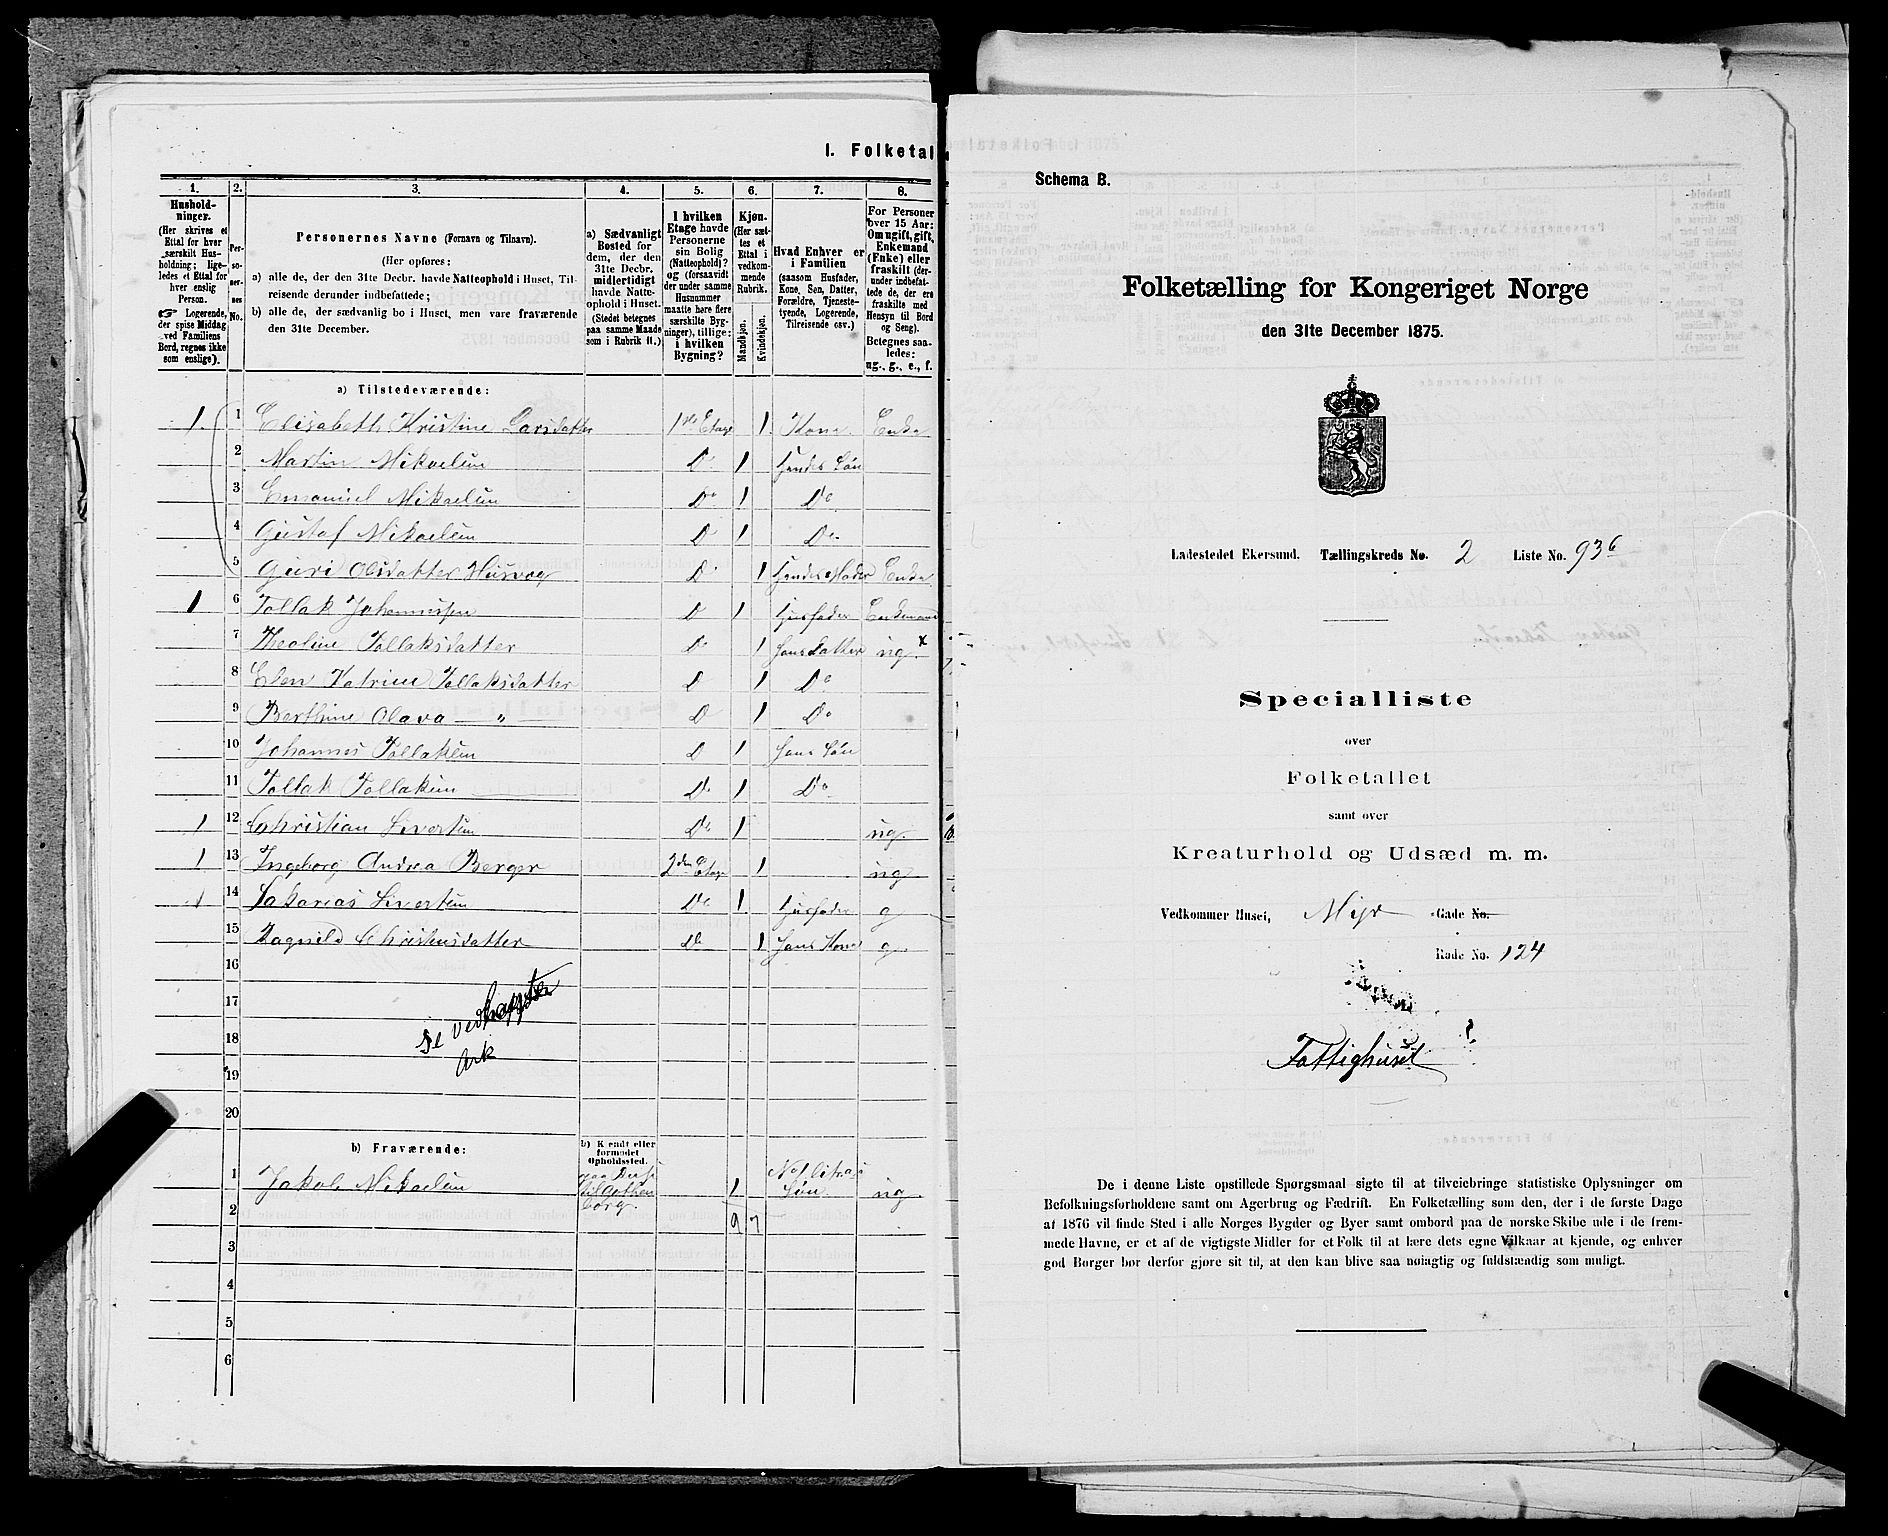 I. Folketal
1. 2. 3. 4. 5. 6. 7. 8.
Hushold-
ninger.
(Her skrives et
Ettal for hver
særskilt Hus-
holdning; lige-
ledes et Ettal for
hver enslig
Person.
☞ Logerende,
der spise Middag
ved Familiens
Bord, regnes ikke
som enslige).
Per-
so-
ner-
nes
No.
Personernes Navne (Fornavn og Tilnavn).
(Her opføres:
a) alle de, der den 31te Decbr. havde Natteophold i Huset, Til-
reisende derunder indbefattede;
b) alle de, der sædvanlig bo i Huset, men vare fraværende
den 31te December.
a) Sædvanligt
Bosted for
dem, der den
31te Decbr.
midlertidigt
havde Natte-
ophold i Huset.
(Stedet betegnes
paa samme Maade
som i Rubrik 11.)
I hvilken
Etage havde
Personerne
sin Bolig
(Natteophold)?
og (forsaavidt
der under samme
Husnummer
maatte høre flere
særskilte Byg-
ninger), tillige:
i hvilken
Bygning?
Kjøn.
(Her sæt-
tes et
Ettal i
vedkom-
mende
Rubrik.
Mandkjøn.
Kvindekjøn.
Hvad Enhver er
i Familien
(saasom Husfader,
Kone, Søn, Datter,
Forældre, Tjeneste-
tyende, Logerende,
Tilreisende osv.)
For Personer
over 15 Aar:
Om ugift, gift,
Enkemand
(Enke) eller
fraskilt (der-
under indbefat-
tede de, der ere
fraskilte med
Hensyn til Bord
og Seng).
Betegnes saa-
ledes:
ug., g., e., f.
a) Tilstedeværende:
1 1 Elisabeth Kristine Larsdatter 1ste Etage 1 Kone Enke
2 Martin Mikaelsen Do 1 Hendes Søn
3 Emanuel Mikaelsen Do 1 Do
4 Gustaf Mikaelsen Do 1 Do
5 Guri Olsdatter Husvog Do 1 Hendes Moder Enke
1 6 Tollak Johannessen Do 1 Husfader Enkemand
7 Theoline Tollaksdatter Do 1 Hans Datter ug. x
8 Elen Katrine Tollaksdatter Do 1 Do
9 Berthine Olava — " — Do 1 Do
10 Johannes Tollaksen Do 1 Hans Søn
11 Tollak Tollaksen Do 1 Do
1 12 Christian Sivertsen Do 1 ug
1 13 Ingeborg Andrea Berger 2den Etage 1 ug
1 14 Sakarias Sivertsen Do 1 Husfader g
15 Ragnild Christensdatter Do 1 Hans Kone g.
16
17
18
19
20
Se vedheftede
Ark
b) Fraværende:
b) Kjendt eller
formodet
Opholdssted.
1 Jakob Mikaelsen paa Reise til Gothenborg. 1 No 1 Søn ug
2 9 7
3
4
5
6
Schema B.
Folketælling for Kongeriget Norge
den 31te December 1875.
Ladestedet Ekersund. Tællingskreds No. 2 Liste No. 93b
Specialliste
over
Folketallet
samt over
Kreaturhold og Udsæd m. m.
Vedkommer Huset, Myr Gade No.
Rode No. 124
Fattighuset
De i denne Liste opstillede Spørgsmaal sigte til at tilveiebringe statistiske Oplysninger om
Befolkningsforholdene samt om Agerbrug og Fædrift. En Folketælling som den, der i de første Dage
af 1876 vil finde Sted i alle Norges Bygder og Byer samt ombord paa de norske Skibe ude i de frem-
mede Havne, er et af de vigtigste Midler for et Folk til at lære dets egne Vilkaar at kjende, og enhver
god Borger bør derfor gjøre sit til, at den kan blive saa nøiagtig og fuldstændig som muligt.